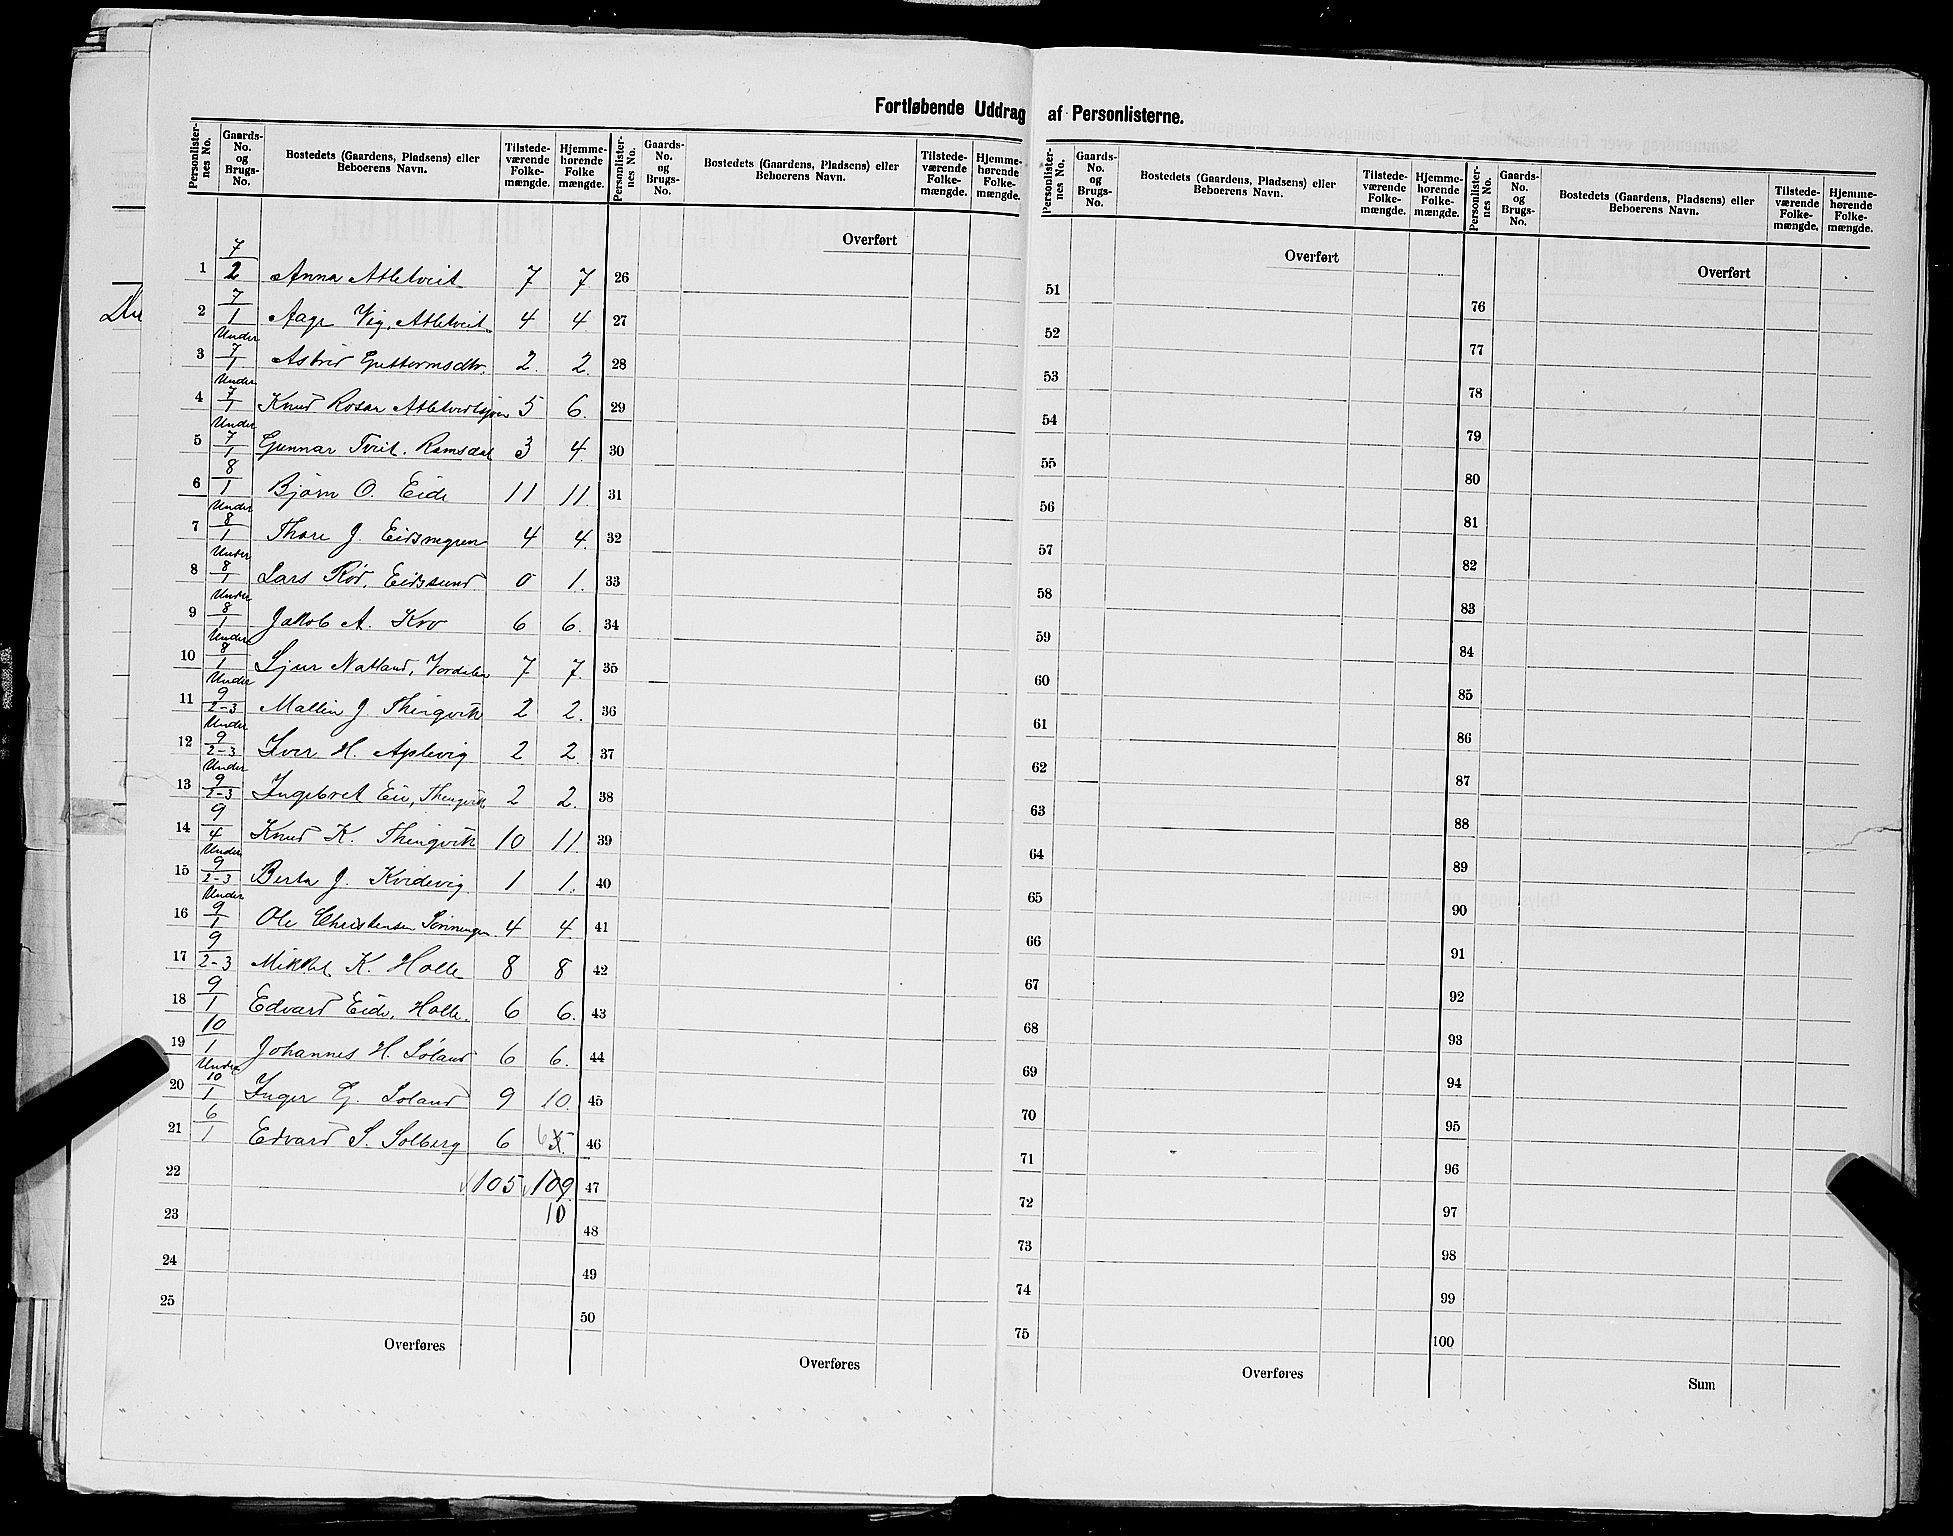 Fortløbende Uddrag af Personlisterne.
Personlisternes No. Gaards-No. og Brugs-No. Bostedets (Gaardens, Pladsens) eller Beboerens Navn. Tilstedeværende Folkemængde. Hjemmehørende Folkemængde.
Personlisternes No. Gaards-No. og Brugs-No. Bostedets (Gaardens, Pladsens) eller Beboerens Navn. Tilstedeværende Folkemængde. Hjemmehørende Folkemængde.
Personlisternes No. Gaards-No. og Brugs-No. Bostedets (Gaardens, Pladsens) eller Beboerens Navn. Tilstedeværende Folkemængde. Hjemmehørende Folkemængde.
Personlisternes No. Gaards-No. og Brugs-No. Bostedets (Gaardens, Pladsens) eller Beboerens Navn. Tilstedeværende Folkemængde. Hjemmehørende Folkemængde.
Overført Overført Overført
1 7/2 Anna Atletveit 7 7 26 51 76
2 7/1 Aage Vig, Atletveit 4 4 27 52 77
3 Under 7/1 Astrid Guttormsdtr. 2. 2. 28 53 78
4 Under 7/1 Knud Rosan 5 6. 29 54 79
5 Under 7/1 Gunnar Tveit. Ramsdal 3 4. 30 55 80
6 8/1 Bjørn O. Eide 11 11. 31 56 81
7 Under 8/1 Thore J. 4 4. 32 57 82
8 Under 8/1 Lars Rød, Eidssund 0 1. 33 58 83
9 Under 8/1 Jakob A. Kro 6 6. 34 59 84
10 Under 8/1 Sjur Natland, 7 7. 35 60 85
11 Under 9/2-3 Mallin J. Thengvik 2 2. 36 61 86
12 Under 9/2-3 Iver H. Aplevig 2 2. 37 62 87
13 Under 9/2-3 Ingebret Eie, Thengvik 2 2. 38 63 88
14 9/4 Knud K. Thengvik 10 11. 39 64 89
15 Under 9/2-3 Berta J. Kvidevig. 1 1. 40 65 90
16 Under 9/1 Ole Christensen 4 4. 41 66 91
17 9/2-3 Mikkel K. Halle 8 8 42 67 92
18 9/1 Edvard Eide, Halle. 6 6. 43 68 93
19 10/1 Johannes H. Søland 6 6. 44 69 94
20 Under 10/1 Inger G. Soland 9 10. 45 70 95
21 6/1 Edvard S. Solberg 6 6 5. 46 71 96
22 105 109. 47 72 97
23 10 48 73 98
24 49 74 99
25 50 75 100
Overføres Overføres Overføres Sum